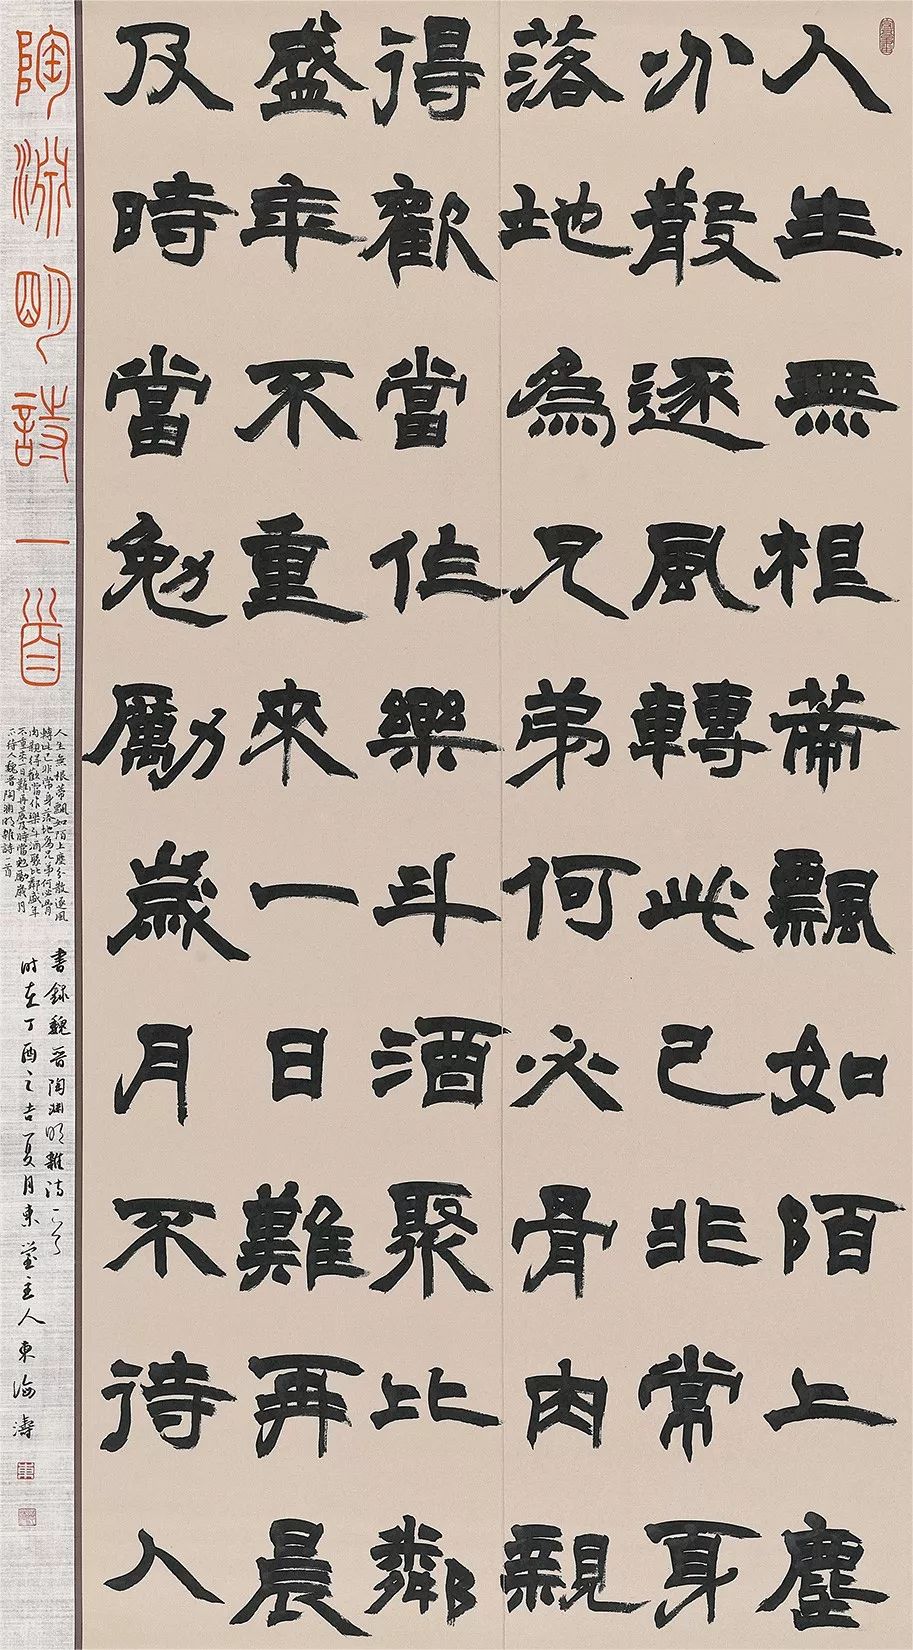 人生無根蒂飄如陌上塵
分散逐風轉此已非常身
落地為兄弟何必骨肉親
得歡當作樂斗酒聚比鄰
盛年不重來一日難再晨
及時當勉勵歲月不待人
陶淵明詩一首
人生無根蒂飄如陌上塵分散逐風
轉此已非常身落地為兄弟何必骨
肉親得歡當作樂斗酒聚比鄰盛年
不重來一日難再晨及時當勉勵歲月
不待人魏晉陶渊明雜詩一首
書錄魏晉陶渊明雜詩一首
時在丁酉之吉夏月東主人東海濤